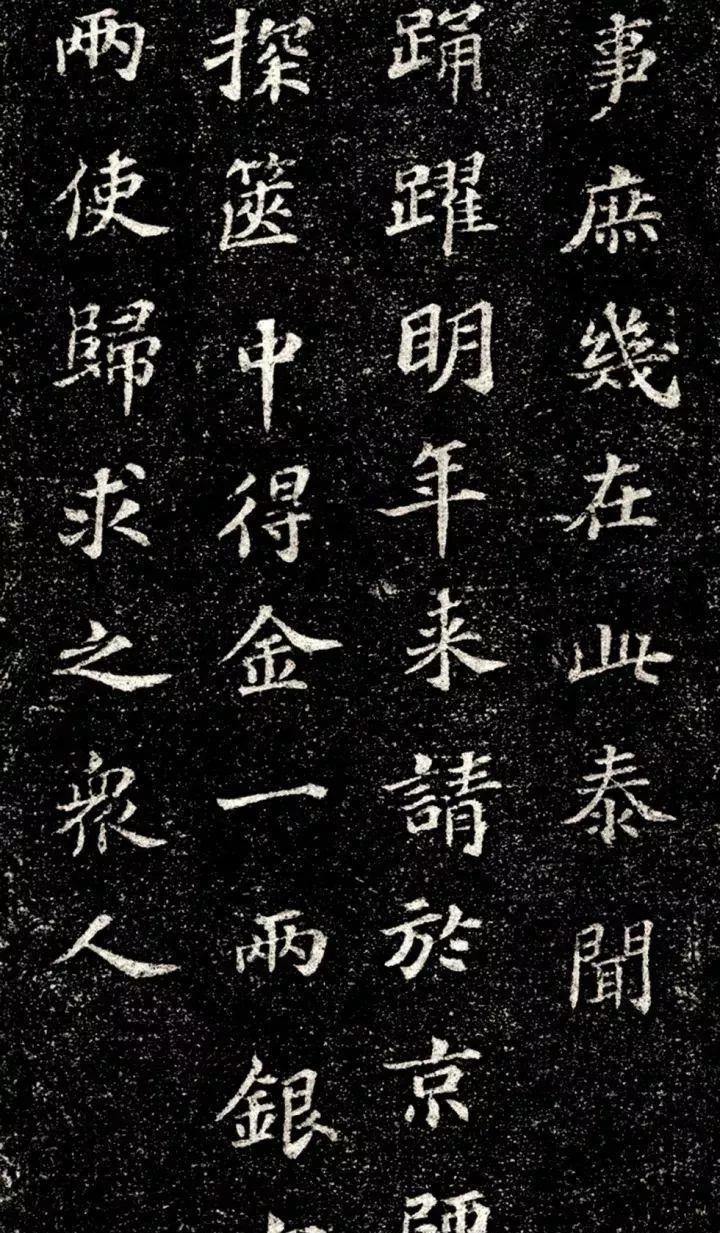 事庶幾在此泰聞
踊躍明年来請於京師
探篋中得金一兩銀
兩使歸求之衆人